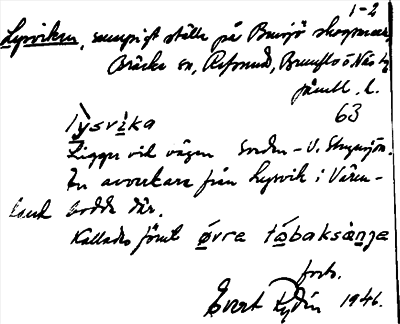 1-2
Lysvikan, sumpigt ställe på Bensjö skogmark,
Bräcke sn, Refsund, Brunflo o Näs tg
jämtl. l.
63
lỳsvìka
Ligger vid vägen Sörden - V. Stugusjön.
En avvittrare från Lysvik i Värm-
land bodde där.
Kallades förut øvre tåbaksänge
forts.
Evert Rydin 1946.